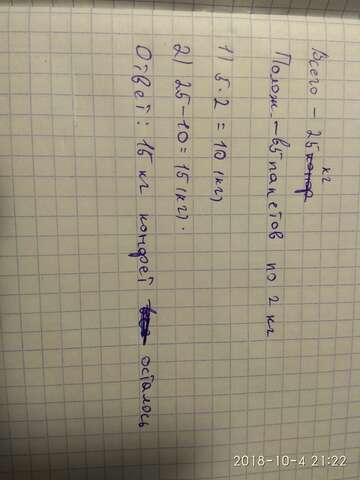 Всего – 25 кг
Полож. – в 5 пакетов по 2 кг
1) 5 · 2 = 10 (кг)
2) 25 – 10 = 15 (кг).
Ответ: 15 кг конфет осталось
2018-10-4 21:22